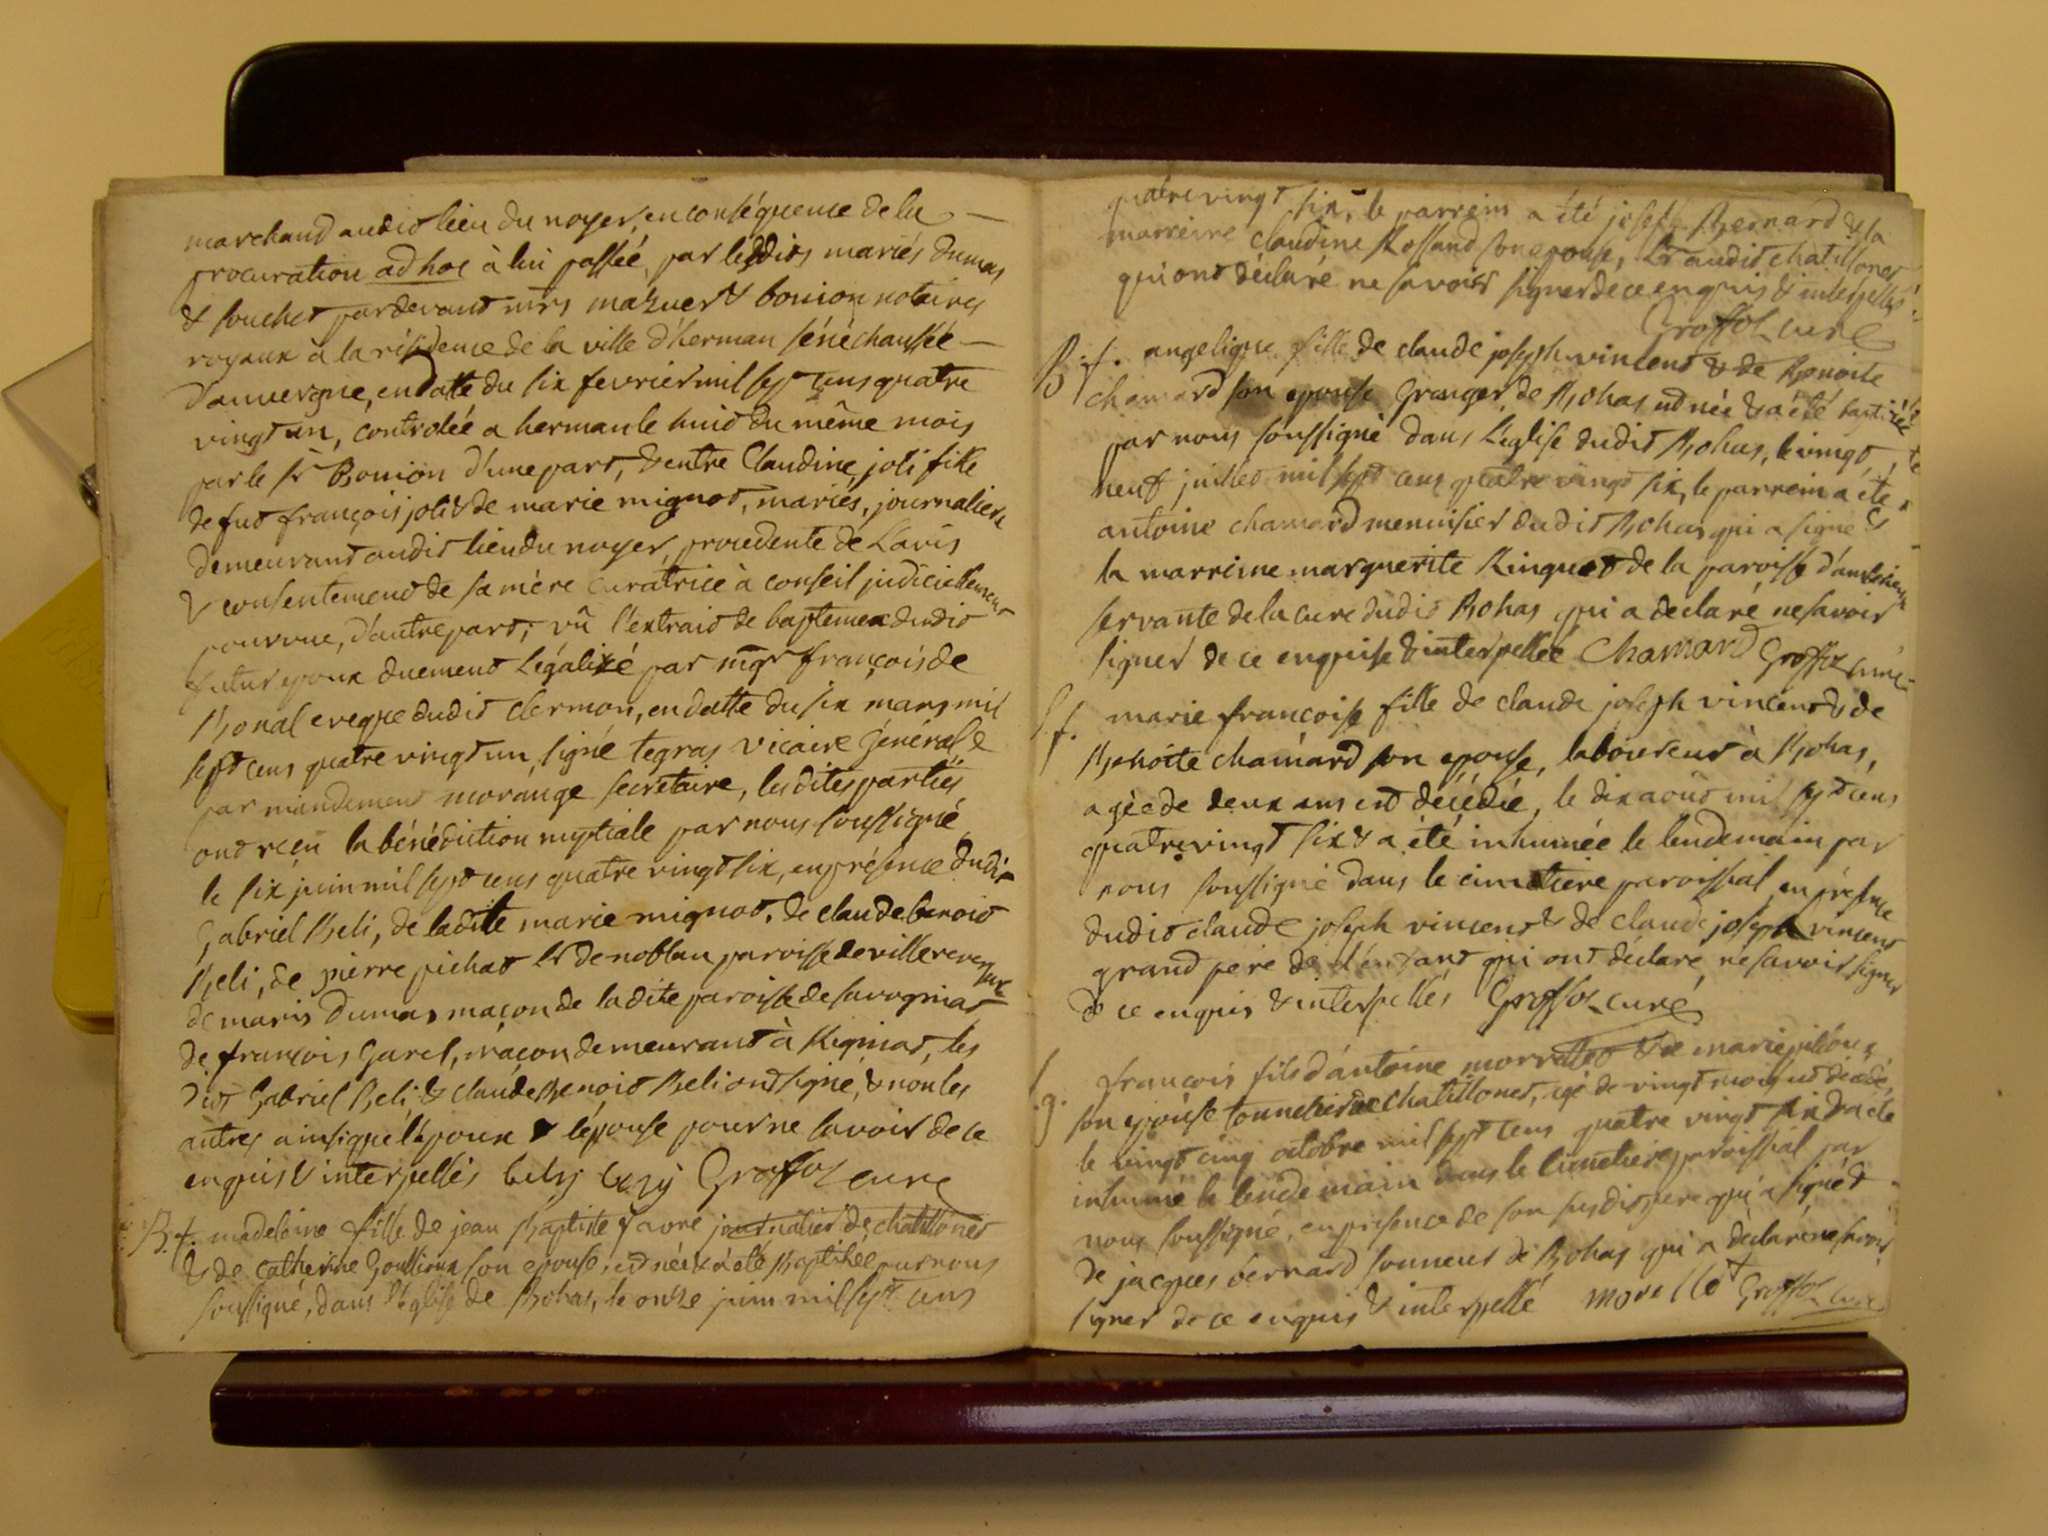 marchand audit lieu du noyer, en conséquence de la —
procuration ad hoc à lui passée, par lesdits mariés dumas
& souchet pardevant mrs mazuer & bonion notaires
royaux a la résidence de la ville d'herman sénéchaussée —
d'auvergne, en datte du six fevrier mil sept cens quatre
vingt un, controlée a herman le huit du même mois
par le sr Bonion d'une part, & entre Claudine joli fille
de fut françois joli & de marie mignot, mariés, journaliers
demeurant audit lieu du noyer, procedente de L'avis
& consentement de sa mère curatrice à conseil judiciellement
pourvue, d'autre part, vû l'extrait de baptemex dudit
futur epoux duement Légalizé par mgr françois de
Bonal eveque dudit clermon, en datte du six mars mil
sept cens quatre vingt un, signé legras vicaire Général &
par mandement morange secretaire, lesdites parties
ont reçu la bénédiction nuptiale par nous soussigné
le six juin mil sept cens quatre vingt six, en présence dudit
Gabriel Beli, de ladite marie mignot, de claude benoit
Beli, de pierre pichat de noblan paroisse de villereversure
de maris dumas maçon de ladite paroisse de savogniat
de françois Garel, maçon demeurant à Rigniat, les
dits Gabriel Beli & claude Benoit Beli ont signé, & non les
autres ainsi que l'époux & l'épouse pour ne savoir de ce
enquis & interpellés Grossos curé
B. f. madeleine fille de jean Baptiste favre journalier de chatillonet
& de catherine Goussioux son epouse, est née & a été Baptisée par nous
soussigné, dans l'église de Bohas, le onze juin mil sept cens
quatre vingt six, le parrein a été joseph Bernard & la
marreine claudine Rossand son epouse, audit chatillonet
qui ont déclaré ne savoir signer de ce enquis & interpellés
Grossos curé
B. f. angelique fille de claude joseph vincent & de Benoite
chamard son epouse Granger de Bohas est née & a été baptisée
par nous soussigné dans l'église dudit Bohas, le vingt
neuf juillet mil sept cens quatre vingt six, le parrein a été
antoine chamard menuisier dudit Bohas qui a signé &
la marreine marguerite Ringuet de la paroisse
servante de la cure dudit Bohas qui a declaré ne savoir
signer de ce enquise & interpellée Chamard Grossos curé
S. f. marie françoise fille de claude joseph vincent & de
Benoite chamard son epouse, laboureur à Bohas,
agée de deux ans est décédée, le dix août mil sept cens
quatre vingt six & a été inhumée le lendemain par
nous soussigné dans le cimetiere paroissial en présence
dudit claude joseph vincent & de claude joseph vincent
grand pere de l'enfant qui ont déclaré ne savoir signer
de ce enquis & interpellés Grossos curé
S. g. françois fils d'antoine morrellet & de marie
son epouse tounelier de chatillonet, agé de vingt mois est décédé
le vingt cinq octobre mil sept cens quatre vingt six & a été
inhumé le lendemain dans le cimetiere paroissial par
nous soussigné, en présence de son susdit pere qui a signé &
de jacques bernard sonneur de Bohas qui a déclaré ne savoir
signer de ce enquis & interpellé morellet Grossos curé